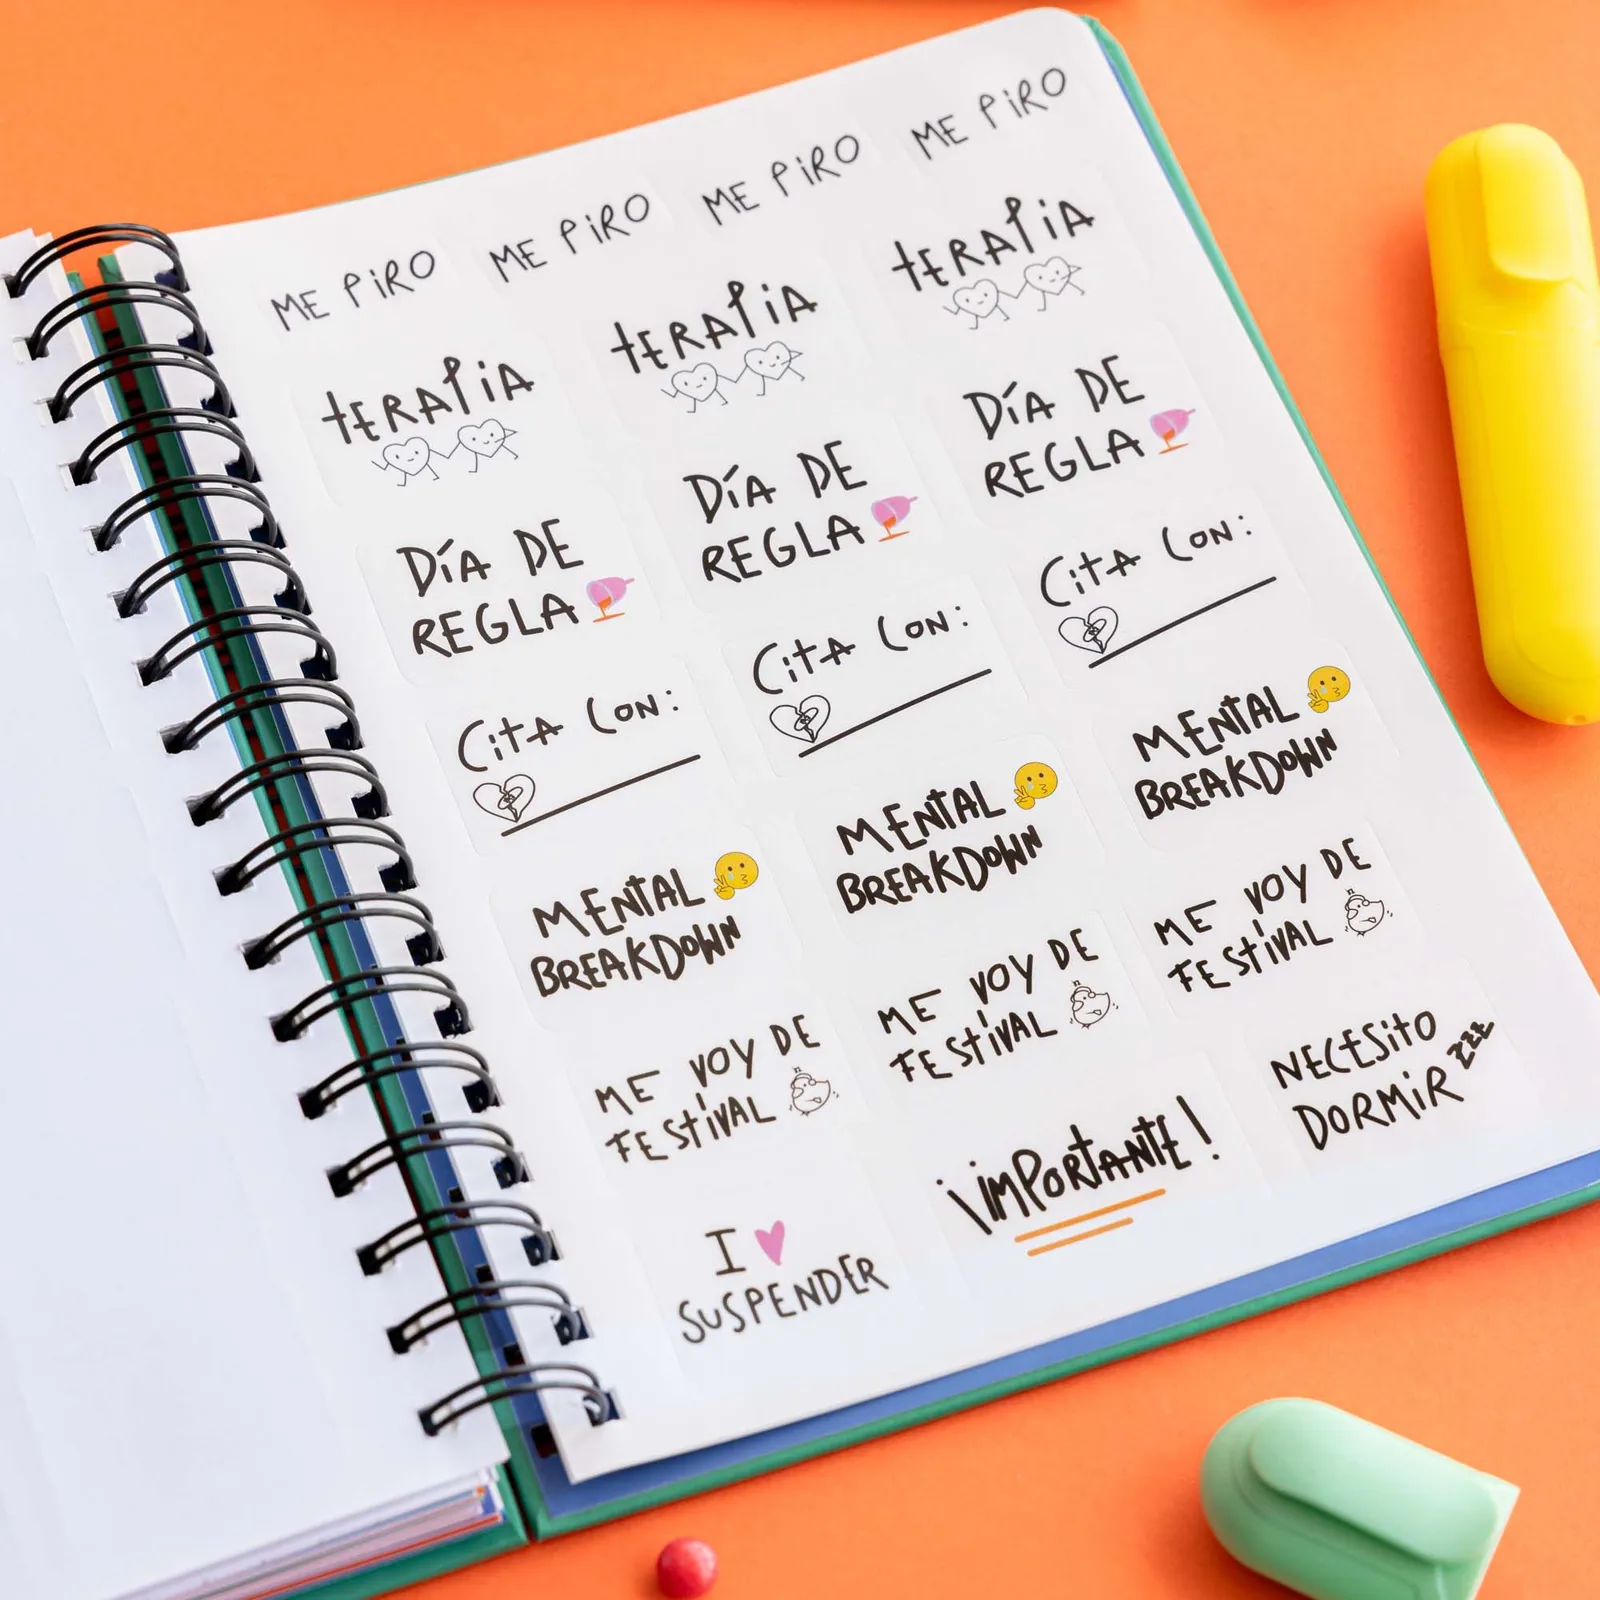 ME PiRO ME PiRO ME PiRO ME PiRO
tERAPiA tERAPiA tERAPiA
DÍA DE DÍA DE DÍA DE
REGLA REGLA REGLA
CitA CON: CitA CON: CitA CON:
MENTAL MENTAL MENTAL
BREAKDOWN BREAKDOWN BREAKDOWN
ME VOY DE ME VOY DE ME VOY DE
FEStiVAL FEStiVAL FEStiVAL
I ♥
SUSPENDER
¡iMPORtANtE!
NECESito
DORMiR zzz